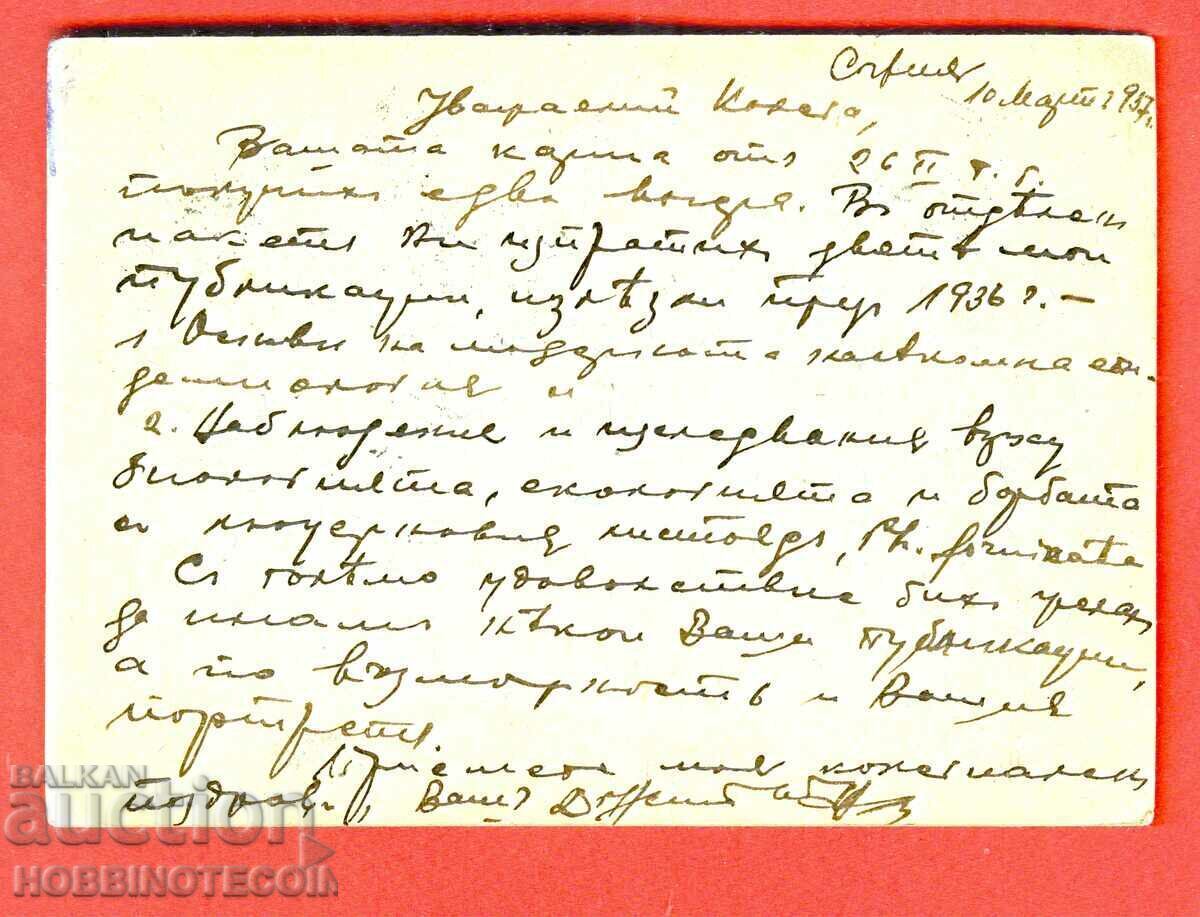 София
10 Март 1937 г.
Уважаемий Колега,
Вашата карта отъ 26 II т. г.
получихъ едва вчера. Въ отдѣленъ
пакетъ Ви изпратихъ дветѣ мои
публикации, излѣзли презъ 1936 г. –
1 Основи на модерната насѣкомна епи-
демиология и
2. Наблюдения и изследвания върху
биологията, екологията и борбата
съ люцерновия листоядъ, Ph. fornicata
Съ голѣмо удоволствие бихъ желалъ
да имамъ нѣкои Ваши публикации,
а по възможность и Вашия
портретъ.
Приемете моя колегиаленъ
поздравъ, Вашъ
BALKAN
auction
HOBBINOTECOIN